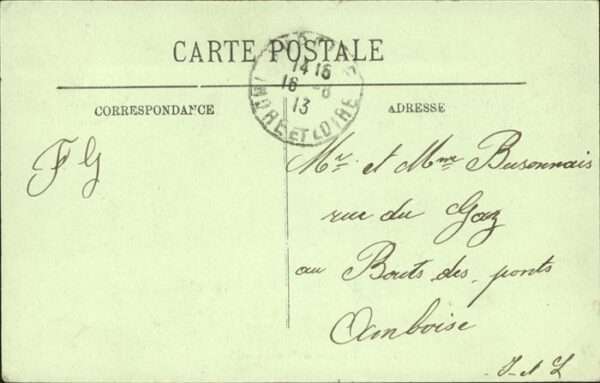 CARTE POSTALE
14 15
16 -8
13
INDRE ET LOIRE
CORRESPONDANCE
ADRESSE
F G
Mr. et Mme Busonnais
rue du Gaz
au Bouts des ponts
Amboise
I. et L